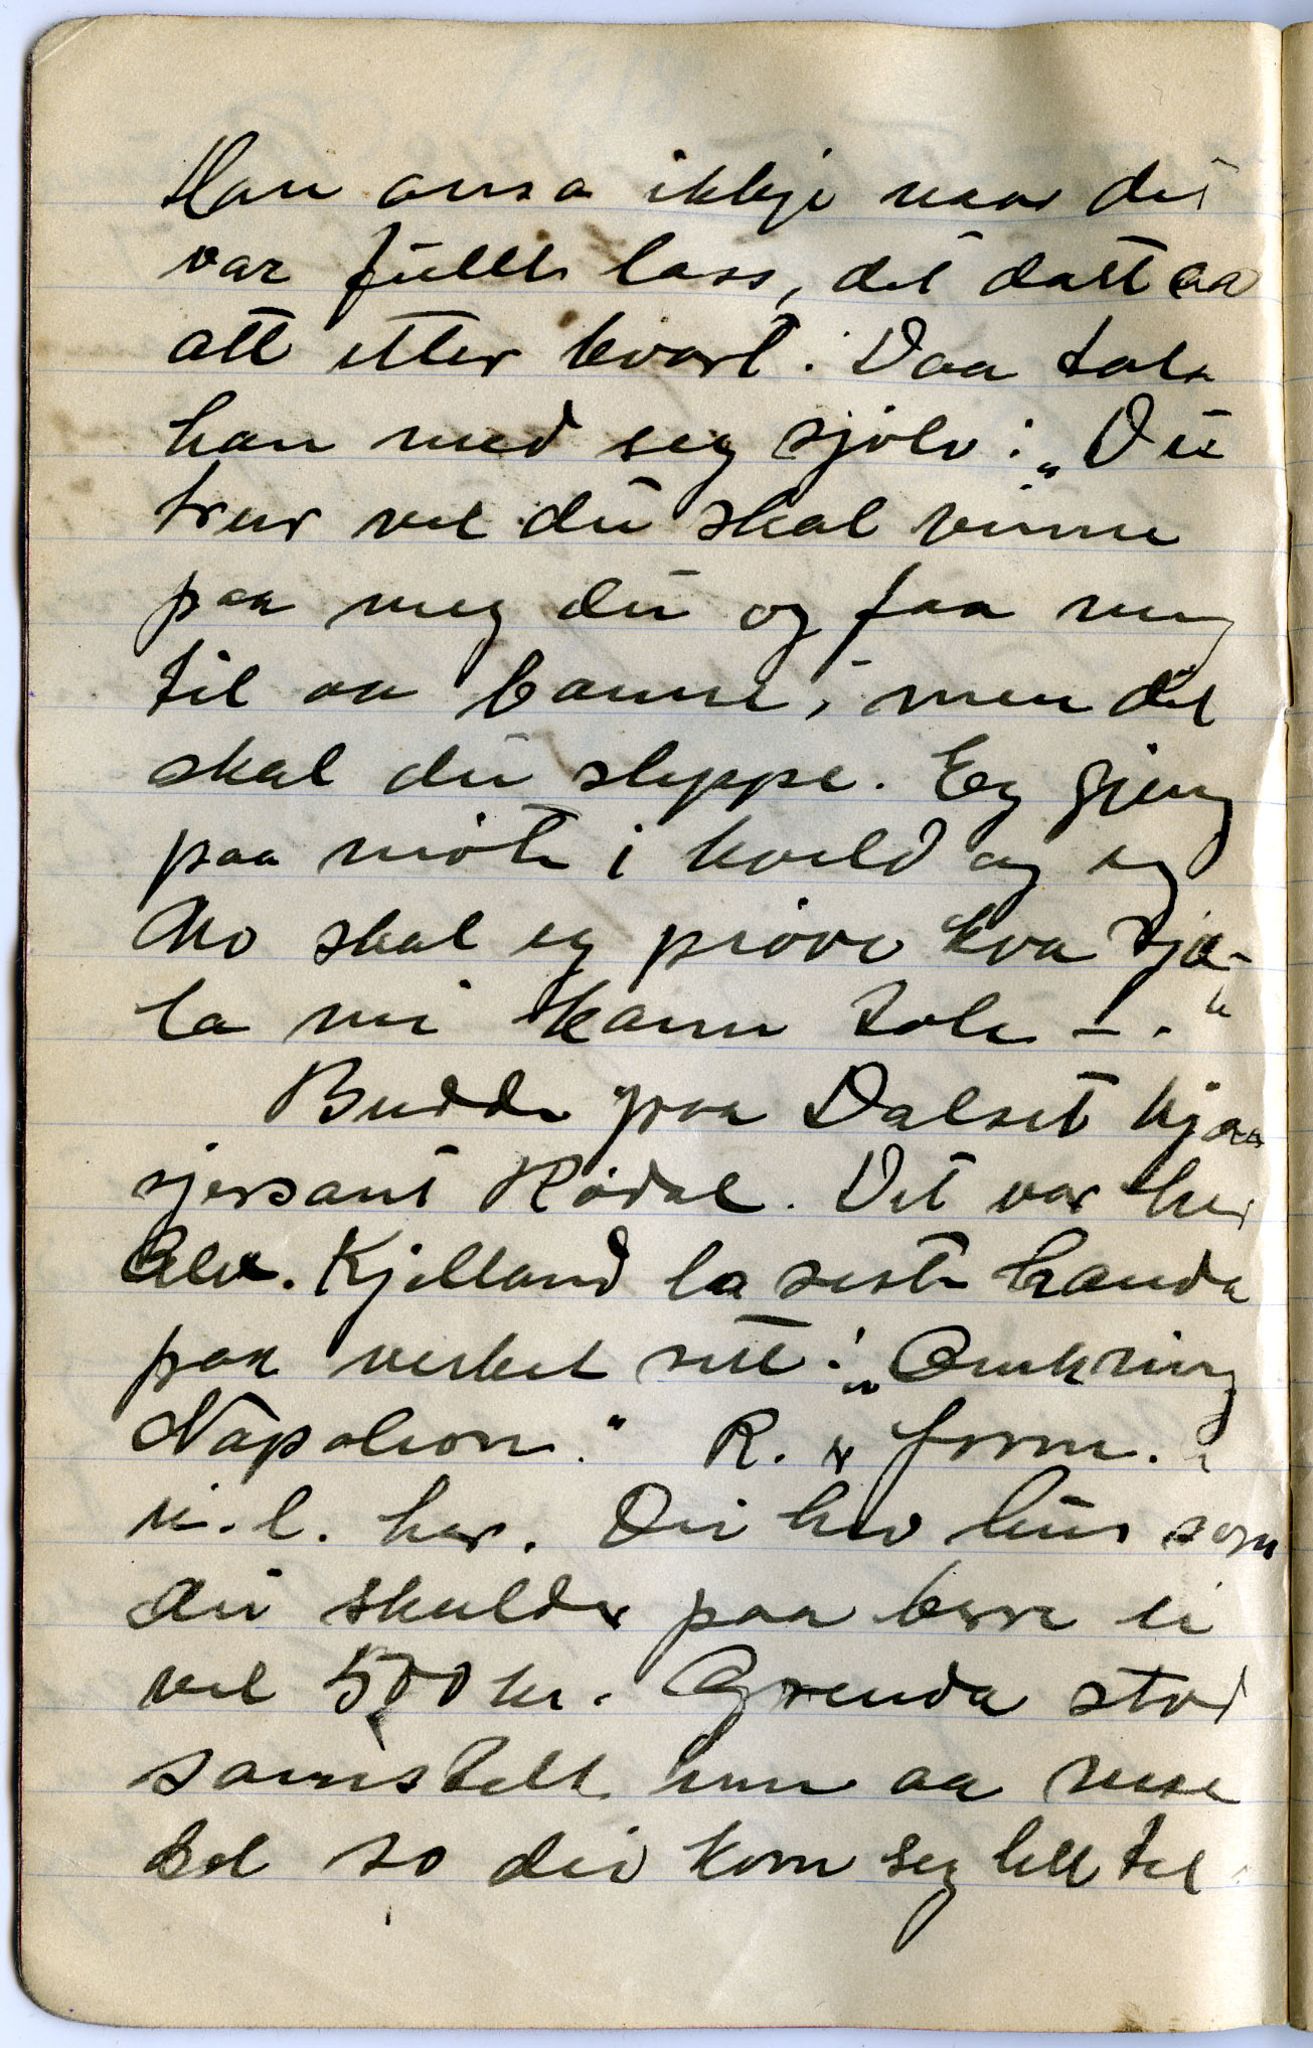 Han ansa ikkje naar det
var fullt lass, det datt aa
att etter kvart. Daa tala
han med seg sjølv: „Du
trur vel du skal vinne
paa meg du og faa meg
til aa banne, men det
skal du sleppe. Eg gjeng
paa møte i kveld og eg
No skal eg prøve kva sjæ-
la mi kann tole – ."
Budde paa Dalset hjaa
sjersant Rödal. Det var her
Alex. Kjelland la siste handa
paa verket sitt: „Omkring
Napoleon." R. er form. i
u.l. her. Dei hev hus som
dei skulder paa berre ei
vel 500 kr. Grenda stod
samstelt um aa
det so dei kom seg litt til